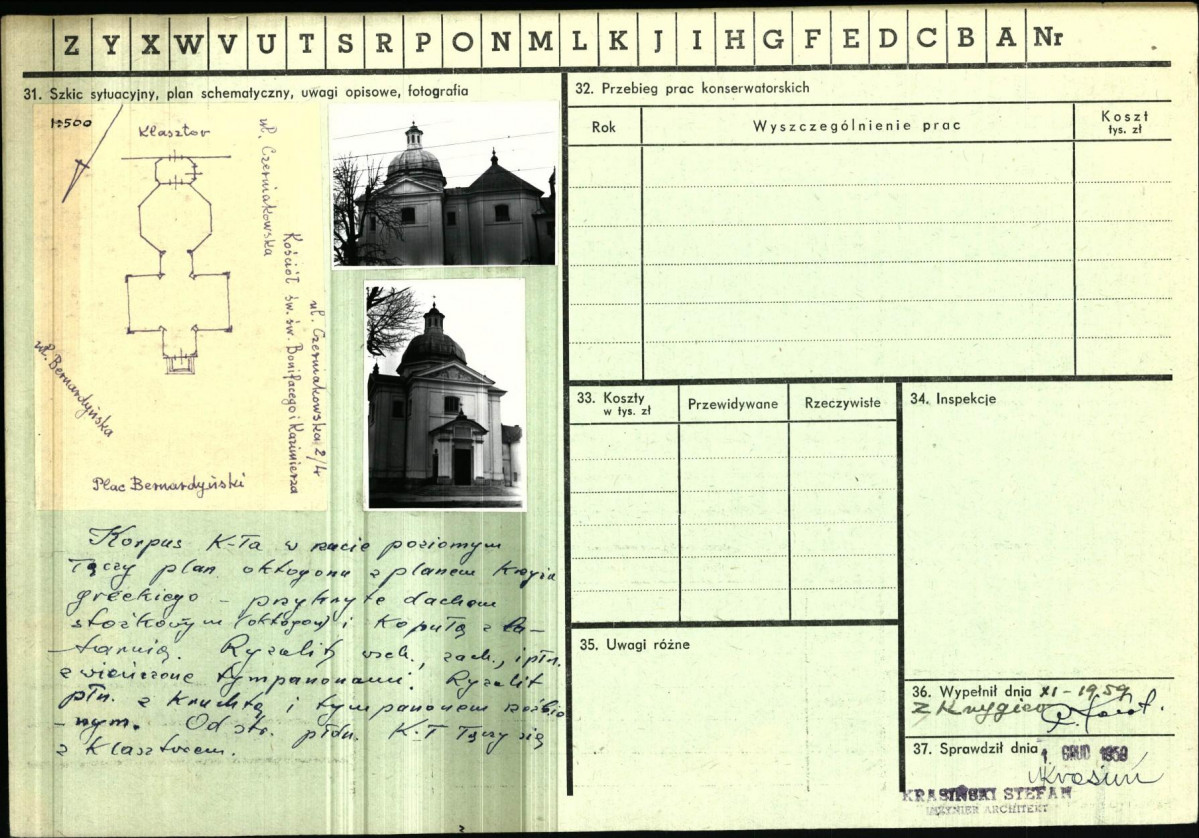 Z Y X W V U T S R P O N M L K J I H G F E D C B A Nr
31. Szkic sytuacyjny, plan schematyczny, uwagi opisowe, fotografia
1:500
Klasztor
ul. Czerniakowska
Kościół św. św. Bonifacego i Kazimierza
ul. Czerniakowska 2/4
ul. Bernardyńska
Plac Bernardyński
Korpus K-ła w rzucie poziomym
łączy plan oktogonu z planem krzyża
greckiego – przykryte dachem
stożkowym (oktogon) i kopułą z la-
tarnią. Ryzality wsch., zach., i płn.
zwieńczone tympanonami. Ryzalit
płn. z kruchtą i tympanonem
-nym. Od str. płdn. K-ł łączy się
z klasztorem.
32. Przebieg prac konserwatorskich
Rok
Wyszczególnienie prac
Koszt
tys. zł
33. Koszty
w tys. zł
Przewidywane
Rzeczywiste
34. Inspekcje
35. Uwagi różne
36. Wypełnił dnia XI-1959
37. Sprawdził dnia
1. GRUD 1959
KRASIŃSKI STEFAN
INŻYNIER ARCHITEKT